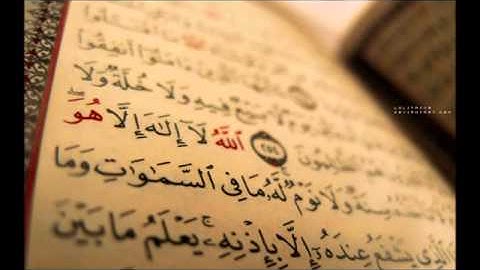 ءَامَنُوٓا۟ أَنفِقُوا۟
لَّا بَيْعٌ فِيهِ وَلَا خُلَّةٌ وَلَا
ٱللَّهُ لَآ إِلَٰهَ إِلَّا هُوَ
سِنَةٌ وَلَا نَوْمٌ لَّهُۥ مَا فِى ٱلسَّمَٰوَٰتِ وَمَا
ٱلَّذِى يَشْفَعُ عِندَهُۥٓ إِلَّا بِإِذْنِهِۦ يَعْلَمُ مَا بَيْنَ